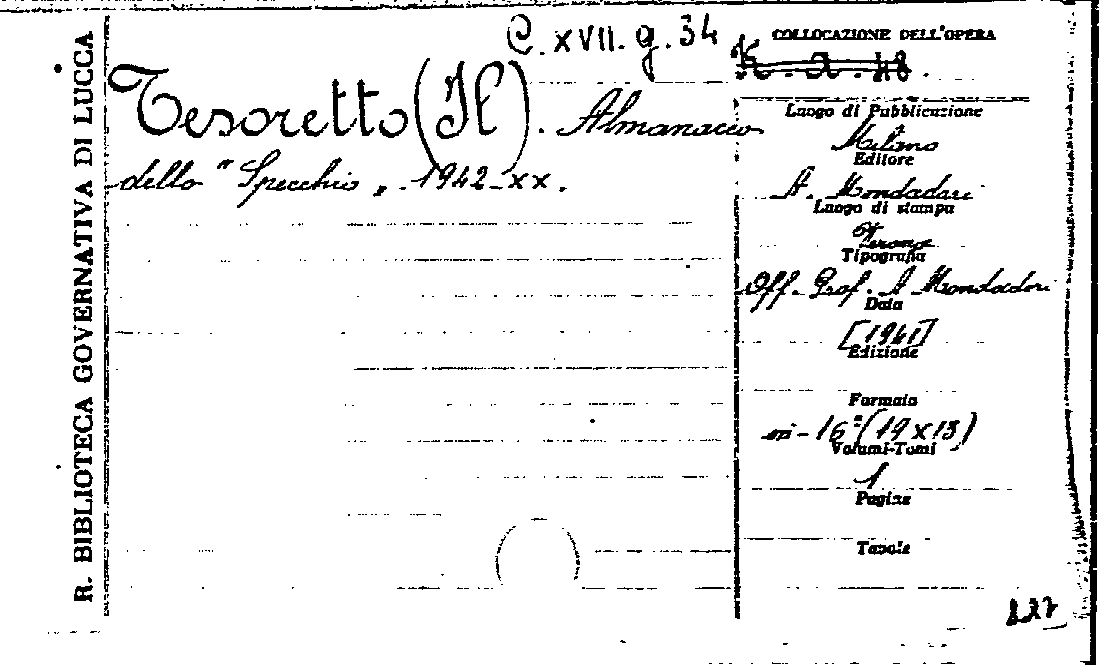 R. BIBLIOTECA GOVERNATIVA DI LUCCA
C. XVII. g. 34
COLLOCAZIONE DELL'OPERA
Tesoretto (Il). Almanacco
dello "Specchio„ 1942-XX.
Luogo di Pubblicazione
Milano
Editore
A. Mondadori
Luogo di stampa
Verona
Tipografia
Off. Graf. A Mondadori
Data
[1941]
Edizione
Formato
in-16° (19x13)
Volumi-Tomi
1
Pagine
Tavole